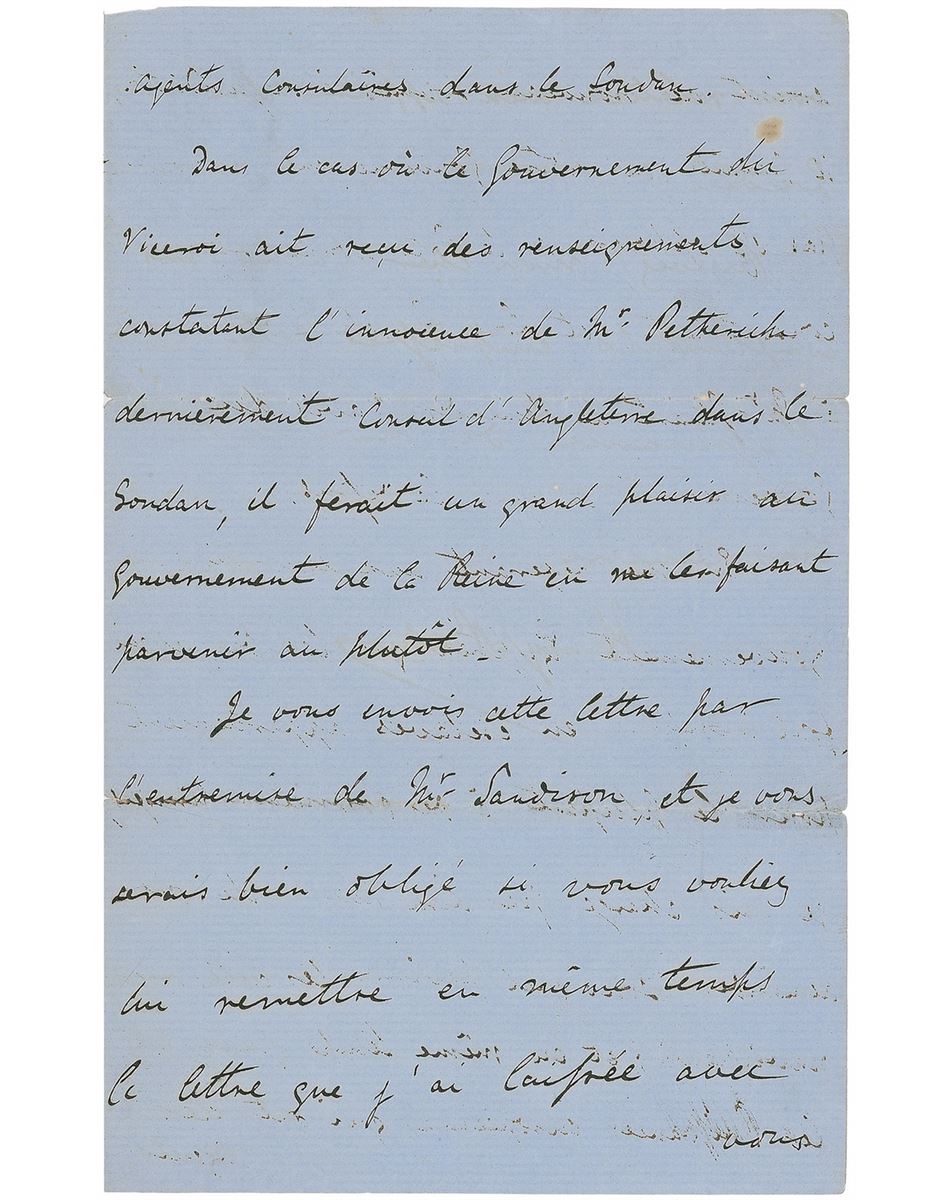 agents Consulaires dans le Soudan.
Dans le cas où le Gouvernement du
Viceroi ait reçu des renseignements
constatant l'innocence de Mr. Petherick
dernièrement Consul d'Angleterre dans le
Soudan, il ferait un grand plaisir au
Gouvernement de la Reine en me les faisant
parvenir au plutôt.
Je vous envois cette lettre par
l'entremise de Mr Sandison et je vous
serais bien obligé si vous vouliez
lui remettre en même temps
la lettre que j'ai laissée avec
vous